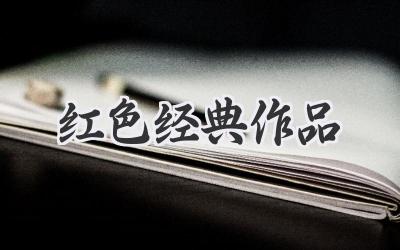 红色经典作品